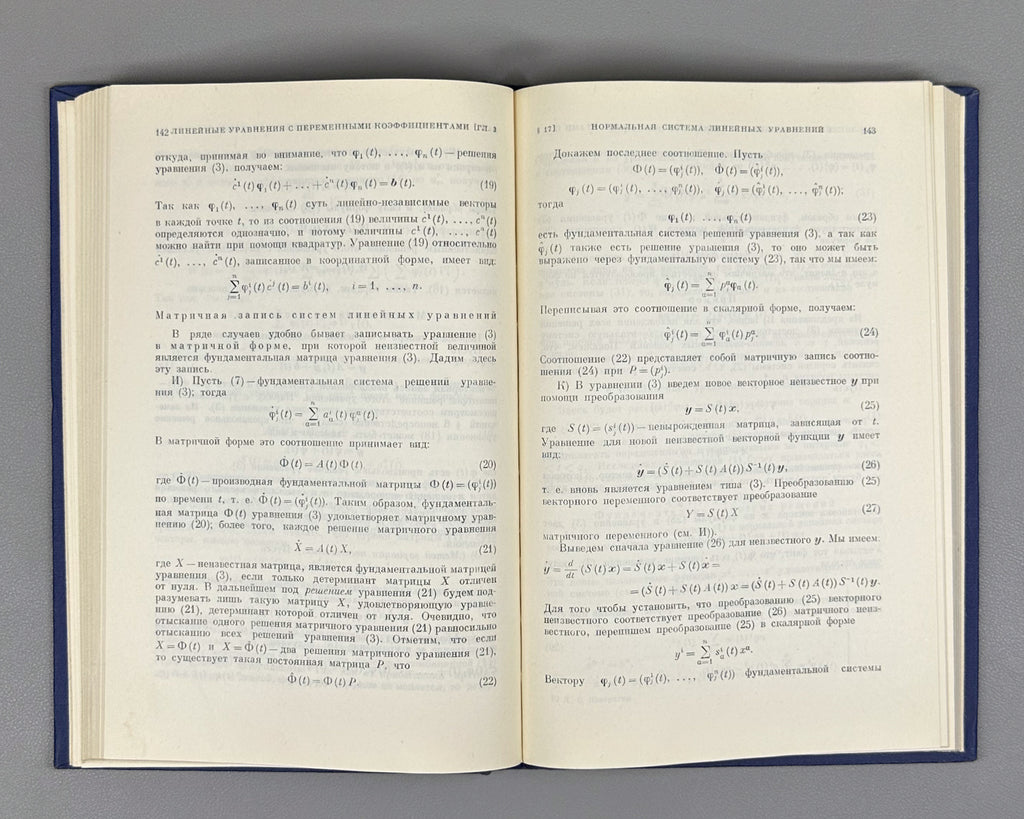 142 ЛИНЕЙНЫЕ УРАВНЕНИЯ С ПЕРЕМЕННЫМИ КОЭФФИЦИЕНТАМИ [ГЛ. 3
откуда, принимая во внимание, что φ₁(t), ..., φₙ(t) — решения
уравнения (3), получаем:
ċ¹(t) φ₁(t) + ... + ċⁿ(t) φₙ(t) = b(t). (19)
Так как φ₁(t), ..., φₙ(t) суть линейно-независимые векторы
в каждой точке t, то из соотношения (19) величины ċ¹(t), ..., ċⁿ(t)
определяются однозначно, и потому величины c¹(t), ..., cⁿ(t)
можно найти при помощи квадратур. Уравнение (19) относительно
ċ¹(t), ..., ċⁿ(t), записанное в координатной форме, имеет вид:
n
∑ φⱼⁱ(t) ċʲ(t) = bⁱ(t), i = 1, ..., n.
j=1
Матричная запись систем линейных уравнений
В ряде случаев удобно бывает записывать уравнение (3)
в матричной форме, при которой неизвестной величиной
является фундаментальная матрица уравнения (3). Дадим здесь
эту запись.
И) Пусть (7) — фундаментальная система решений уравне-
ния (3); тогда
n
φ̇ⱼⁱ(t) = ∑ aₐⁱ(t) φⱼᵅ(t).
α=1
В матричной форме это соотношение принимает вид:
Φ̇(t) = A(t) Φ(t), (20)
где Φ̇(t) — производная фундаментальной матрицы Φ(t) = (φⱼⁱ(t))
по времени t, т. е. Φ̇(t) = (φ̇ⱼⁱ(t)). Таким образом, фундаменталь-
ная матрица Φ(t) уравнения (3) удовлетворяет матричному урав-
нению (20); более того, каждое решение матричного уравнения
Ẋ = A(t) X, (21)
где X — неизвестная матрица, является фундаментальной матрицей
уравнения (3), если только детерминант матрицы X отличен
от нуля. В дальнейшем под решением уравнения (21) будем под-
разумевать лишь такую матрицу X, удовлетворяющую уравне-
нию (21), детерминант которой отличен от нуля. Очевидно, что
отыскание одного решения матричного уравнения (21) равносильно
отысканию всех решений уравнения (3). Отметим, что если
X = Φ(t) и X = Φ̂(t) — два решения матричного уравнения (21),
то существует такая постоянная матрица P, что
Φ̂(t) = Φ(t) P. (22)
§ 17] НОРМАЛЬНАЯ СИСТЕМА ЛИНЕЙНЫХ УРАВНЕНИЙ 143
Докажем последнее соотношение. Пусть
Φ(t) = (φⱼⁱ(t)), Φ̂(t) = (φ̂ⱼⁱ(t)),
φⱼ(t) = (φⱼ¹(t), ..., φⱼⁿ(t)), φ̂ⱼ(t) = (φ̂ⱼ¹(t), ..., φ̂ⱼⁿ(t));
тогда
φ₁(t), ..., φₙ(t) (23)
есть фундаментальная система решений уравнения (3), а так как
φ̂ⱼ(t) также есть решение уравнения (3), то оно может быть
выражено через фундаментальную систему (23), так что мы имеем:
n
φ̂ⱼ(t) = ∑ pⱼᵅφₐ(t).
α=1
Переписывая это соотношение в скалярной форме, получаем:
n
φ̂ⱼⁱ(t) = ∑ φₐⁱ(t) pⱼᵅ. (24)
α=1
Соотношение (22) представляет собой матричную запись соотно-
шения (24) при P = (pⱼⁱ).
К) В уравнении (3) введем новое векторное неизвестное y при
помощи преобразования
y = S(t) x, (25)
где S(t) = (sⱼⁱ(t)) — невырожденная матрица, зависящая от t.
Уравнение для новой неизвестной векторной функции y имеет
вид:
ẏ = (Ṡ(t) + S(t) A(t)) S⁻¹(t) y, (26)
т. е. вновь является уравнением типа (3). Преобразованию (25)
векторного переменного соответствует преобразование
Y = S(t) X (27)
матричного переменного (см. И)).
Выведем сначала уравнение (26) для неизвестного y. Мы имеем:
ẏ = d/dt (S(t) x) = Ṡ(t) x + S(t) ẋ =
= (Ṡ(t) + S(t) A(t)) x = (Ṡ(t) + S(t) A(t)) S⁻¹(t) y.
Для того чтобы установить, что преобразованию (25) векторного
неизвестного соответствует преобразование (26) матричного неиз-
вестного, перепишем преобразование (25) в скалярной форме
n
yⁱ = ∑ sₐⁱ(t) xᵅ.
α=1
Вектору φⱼ(t) = (φⱼ¹(t), ..., φⱼⁿ(t)) фундаментальной системы